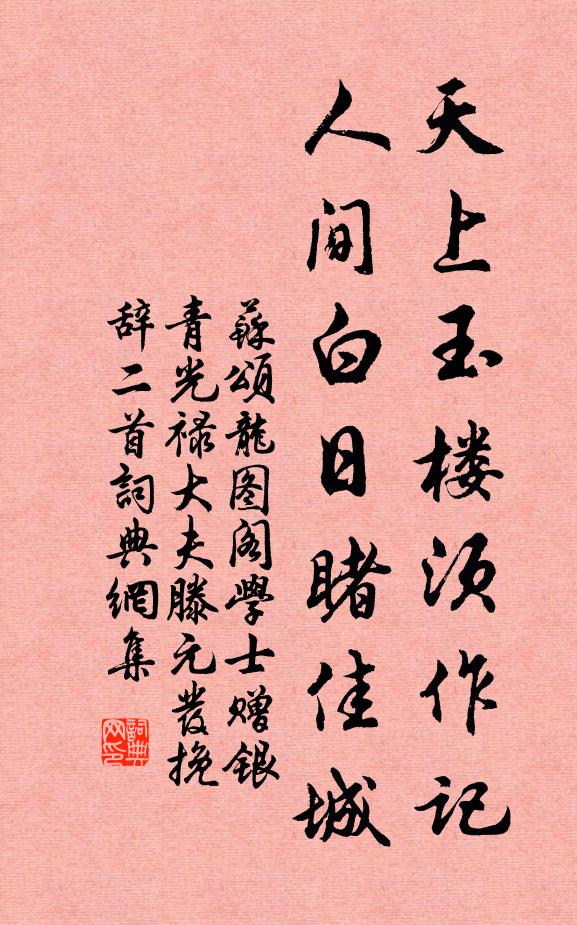 天上玉楼须作记
人间白日睹佳城
蘇頌龍图阁學士赠銀
青光禄大夫滕元發挽
辞二首詞典網集
詞典
网印